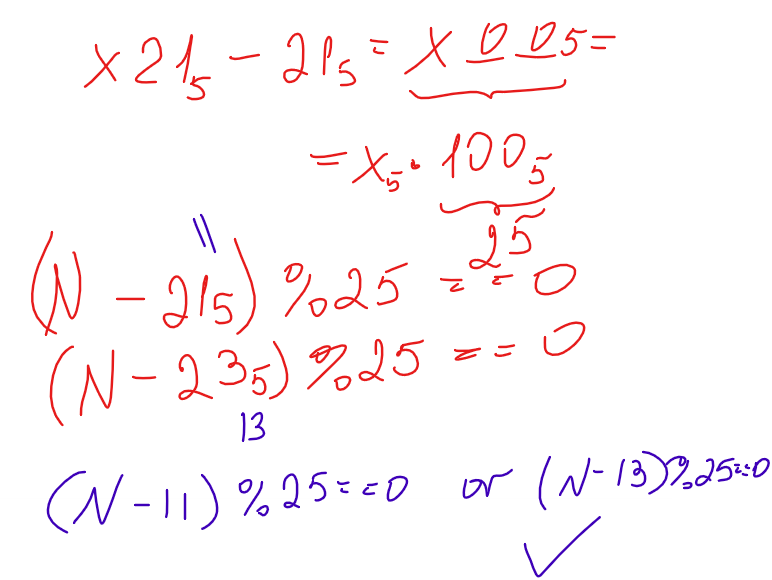 x21₅ - 21₅ = x005 =
= x₅ · 100₅
25
11
(N - 21₅) % 25 == 0
(N - 23₅) % 25 == 0
13
(N - 11) % 25 == 0 or (N - 13) % 25 == 0